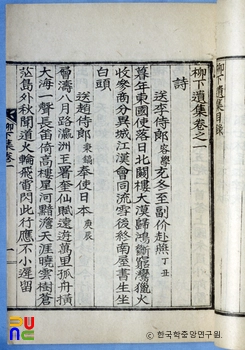 柳下遺集目錄
柳下遺集卷之一
詩
送李侍郎充冬至副价赴燕 丁丑
暮年東國使落日北關樓大漠歸鴻斷窮巒獵火
收參商分異域江漢會同流雪後終南屋書生坐
白頭
送趙侍郎 秉鎬 奉使日本 庚辰
層濤八月路瀛洲王署奎仙賦遠遊萬里孤舟橫
大海一聲長笛倚高樓星河黯澹天涯曉雲樹蒼
茫島外秋聞道火輪飛電閃此行應不小遲留
柳下集卷一
一
ⓒ 한국학중앙연구원